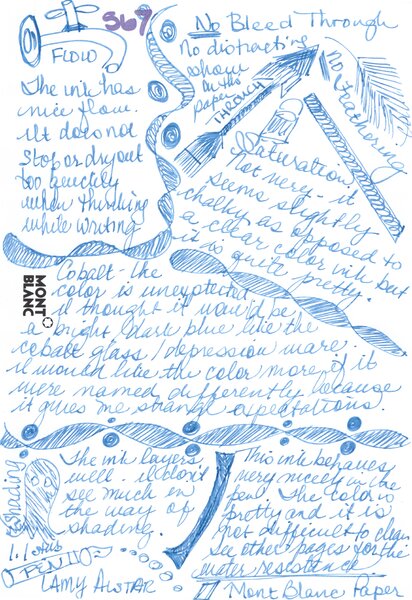 369
FLOW
The ink has
nice flow.
It does not
stop or dry out
too quickly
when thinking
while writing
No Bleed Through
No distracting
show
on the
paper
THROUGH
No Feathering
Saturation:
Not very - it
seems slightly
chalky as opposed to
a clear color ink but
it is quite pretty.
MONT
BLANC
Cobalt - the
color is unexpected.
I thought it would be
a bright/dark blue like the
cobalt glass/depression ware.
I would like the color more if it
were named differently because
it gives me strange expectations.
Shading
The ink layers
well. I don't
see much in
the way of
shading.
1.1 stub
PEN
Amy
This ink behaves
very nicely in the
pen. The color is
pretty and it is
not difficult to clean
see other pages for the
water resistance
Mont Blanc Paper